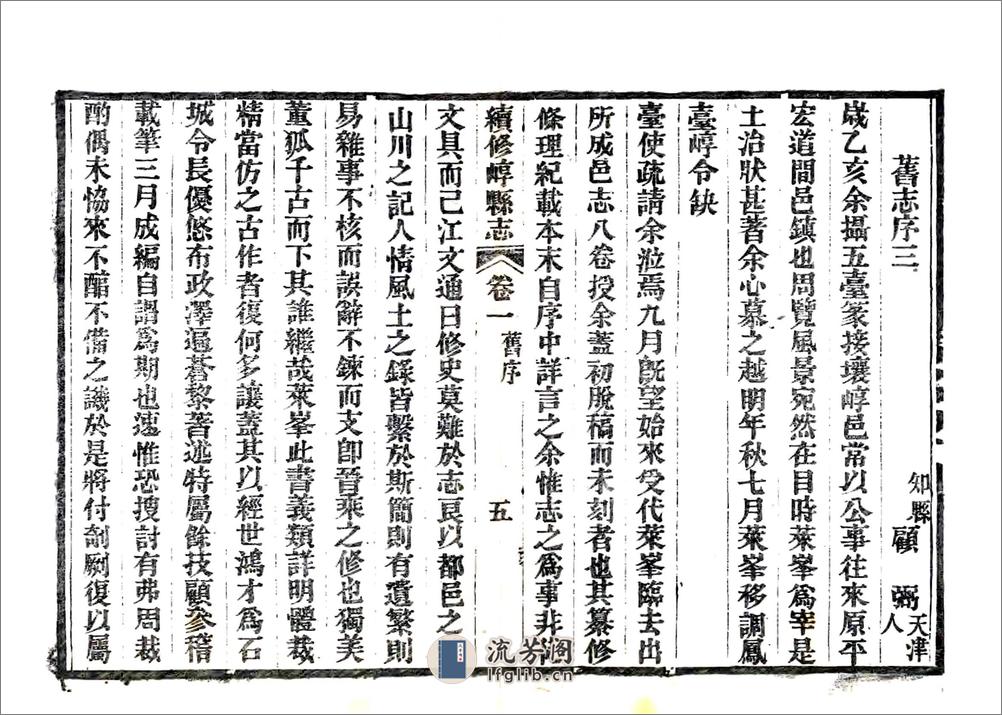 舊志序三
知縣顧弼天津人
歲乙亥余攝五臺篆接壤崞邑常以公事往來原平
宏道間邑鎮也周覽風景宛然在目時萊峯為宰是
土治狀甚著余心慕之越明年秋七月萊峯移調鳳
臺崞令缺
臺使疏請余涖焉九月旣望始來受代萊峯臨去出
所成邑志八卷授余蓋初脫稿而未刻者也其纂修
條理紀載本末自序中詳言之余惟志之為事非
續修崞縣志 卷一 舊序 五
文具而已江文通曰修史莫難於志良以都邑之
山川之記人情風土之錄皆繫於斯簡則有遺繁則
易雜事不核而誤辭不鍊而支卽晉乘之修也獨美
董狐千古而下其誰繼哉萊峯此書義類詳明體裁
精當仿之古作者復何多讓蓋其以經世鴻才為石
城令長優悠布政澤遍蒼黎著述特屬餘技顧參稽
載筆三月成編自謂為期也速惟恐搜討有弗周裁
酌偶未恊來不酯不備之譏於是將付剞劂復以屬
流芳閣
lfglib.cn